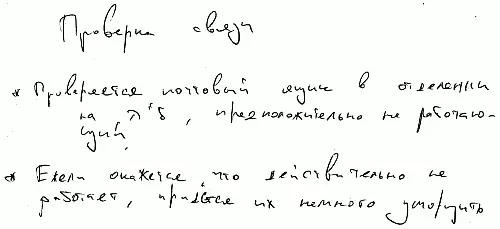 Проверка связи
* Проверяется почтовый ящик в отделении
на π"δ, предположительно не работаю-
щий.
* Если окажется, что действительно не
работает, придется их немного